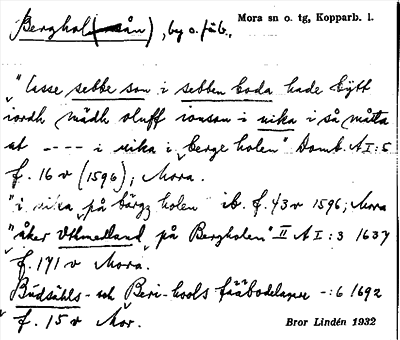 Berghol(en), by o. fäb., Mora sn o. tg, Kopparb. l.
"lasse sebbe son i sebben boda hade bytt
iordh mädh oluff ionson i uika i så måtta
at ---- i uika i berge holen" Domb. A I:5
f. 16 v (1596); Mora.
"i uika på bärgz holen ib. f. 43 v 1596; Mora
"åker Uthmedland på Bergholen" II A I:3 1637
f. 171 v Mora.
Budsähls- och Beri-hools fääbodelager -:6 1692
f. 15 v Mor.
Bror Lindén 1932